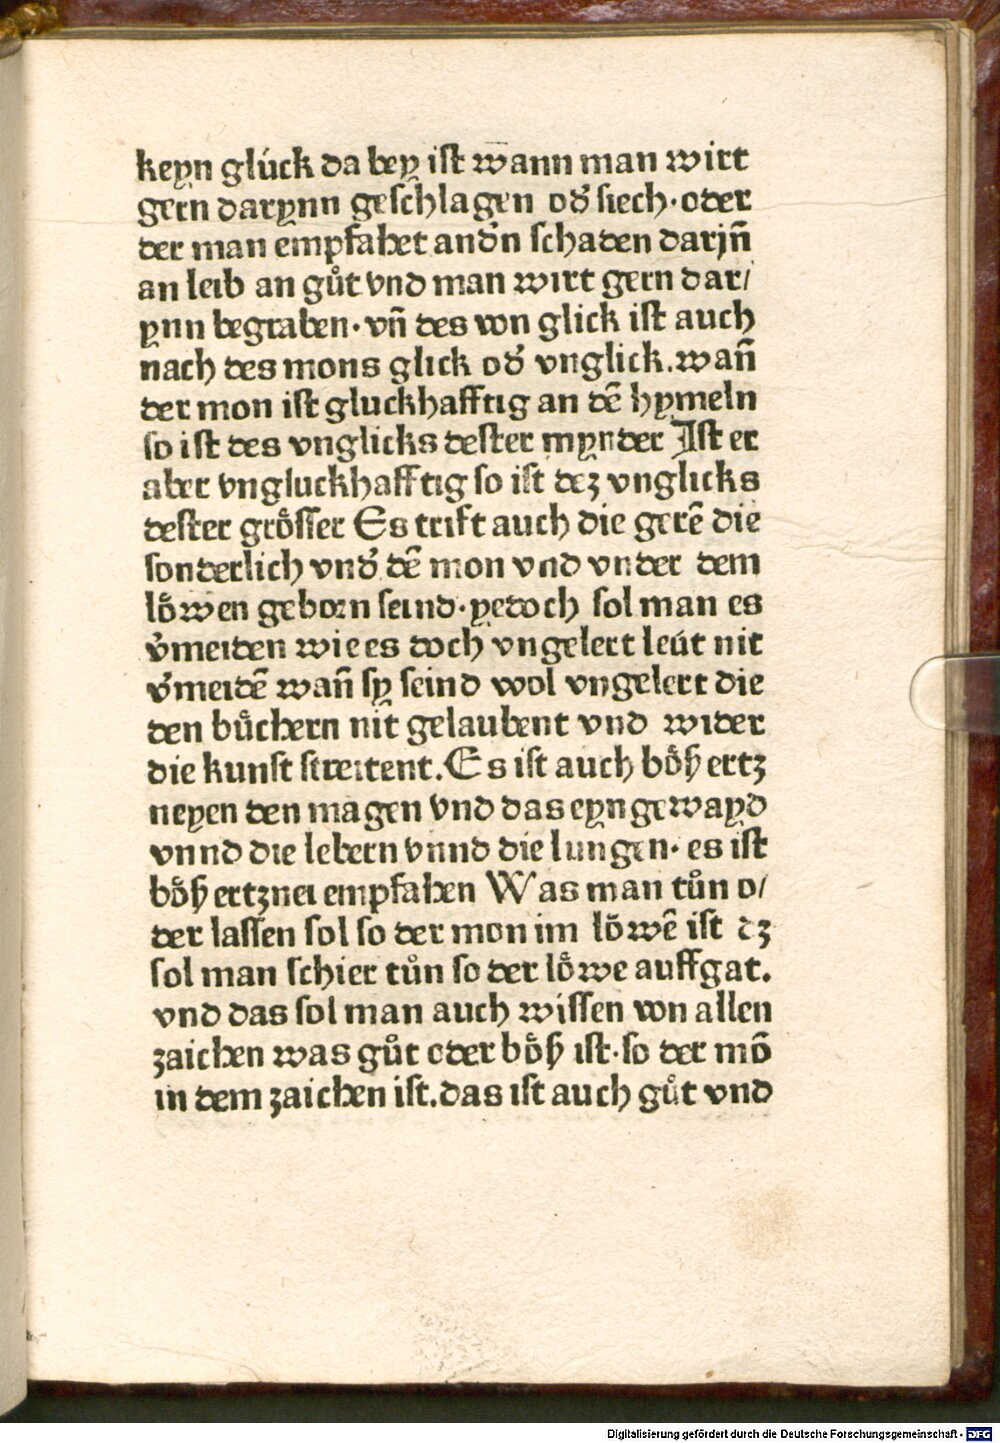 keyn glúck da bey ist wann man wirt
gern darynn geschlagen od᷒ siech·oder
der man empfahet and᷒n schaden darjn̄
an leib an gůt vnd man wirt gern dar/
ynn begraben·vn̄ des von glick ist auch
nach des mons glick od᷒ vnglick.wan̄
der mon ist gluckhafftig an dē hymeln
so ist des vnglicks dester mynder Ist er
aber vngluckhafftig so ist dez vnglicks
dester gro̊sser Es trift auch die gerē die
sonderlich vnd᷒ dē mon vnd vnder dem
lo̊wen geborn seind·yedoch sol man es
v᷒meiden wie es doch vngelert leút nit
v᷒meidē wan̄ sy seind wol vngelert die
den bůchern nit gelaubent vnd wider
die kunst streitent.Es ist auch bo̊ß ertz
neyen den magen vnd das eyngewayd
vnnd die lebern vnnd die lungen·es ist
bo̊ß ertznei empfahen Was man tůn o/
der lassen sol so der mon im lo̊wē ist dz
sol man schier tůn so der lo̊we auffgat.
vnd das sol man auch wissen von allen
zaichen was gůt oder bo̊ß ist·so der mō
in dem zaichen ist.das ist auch gůt vnd
Digitalisierung gefördert durch die Deutsche Forschungsgemeinschaft - DFG